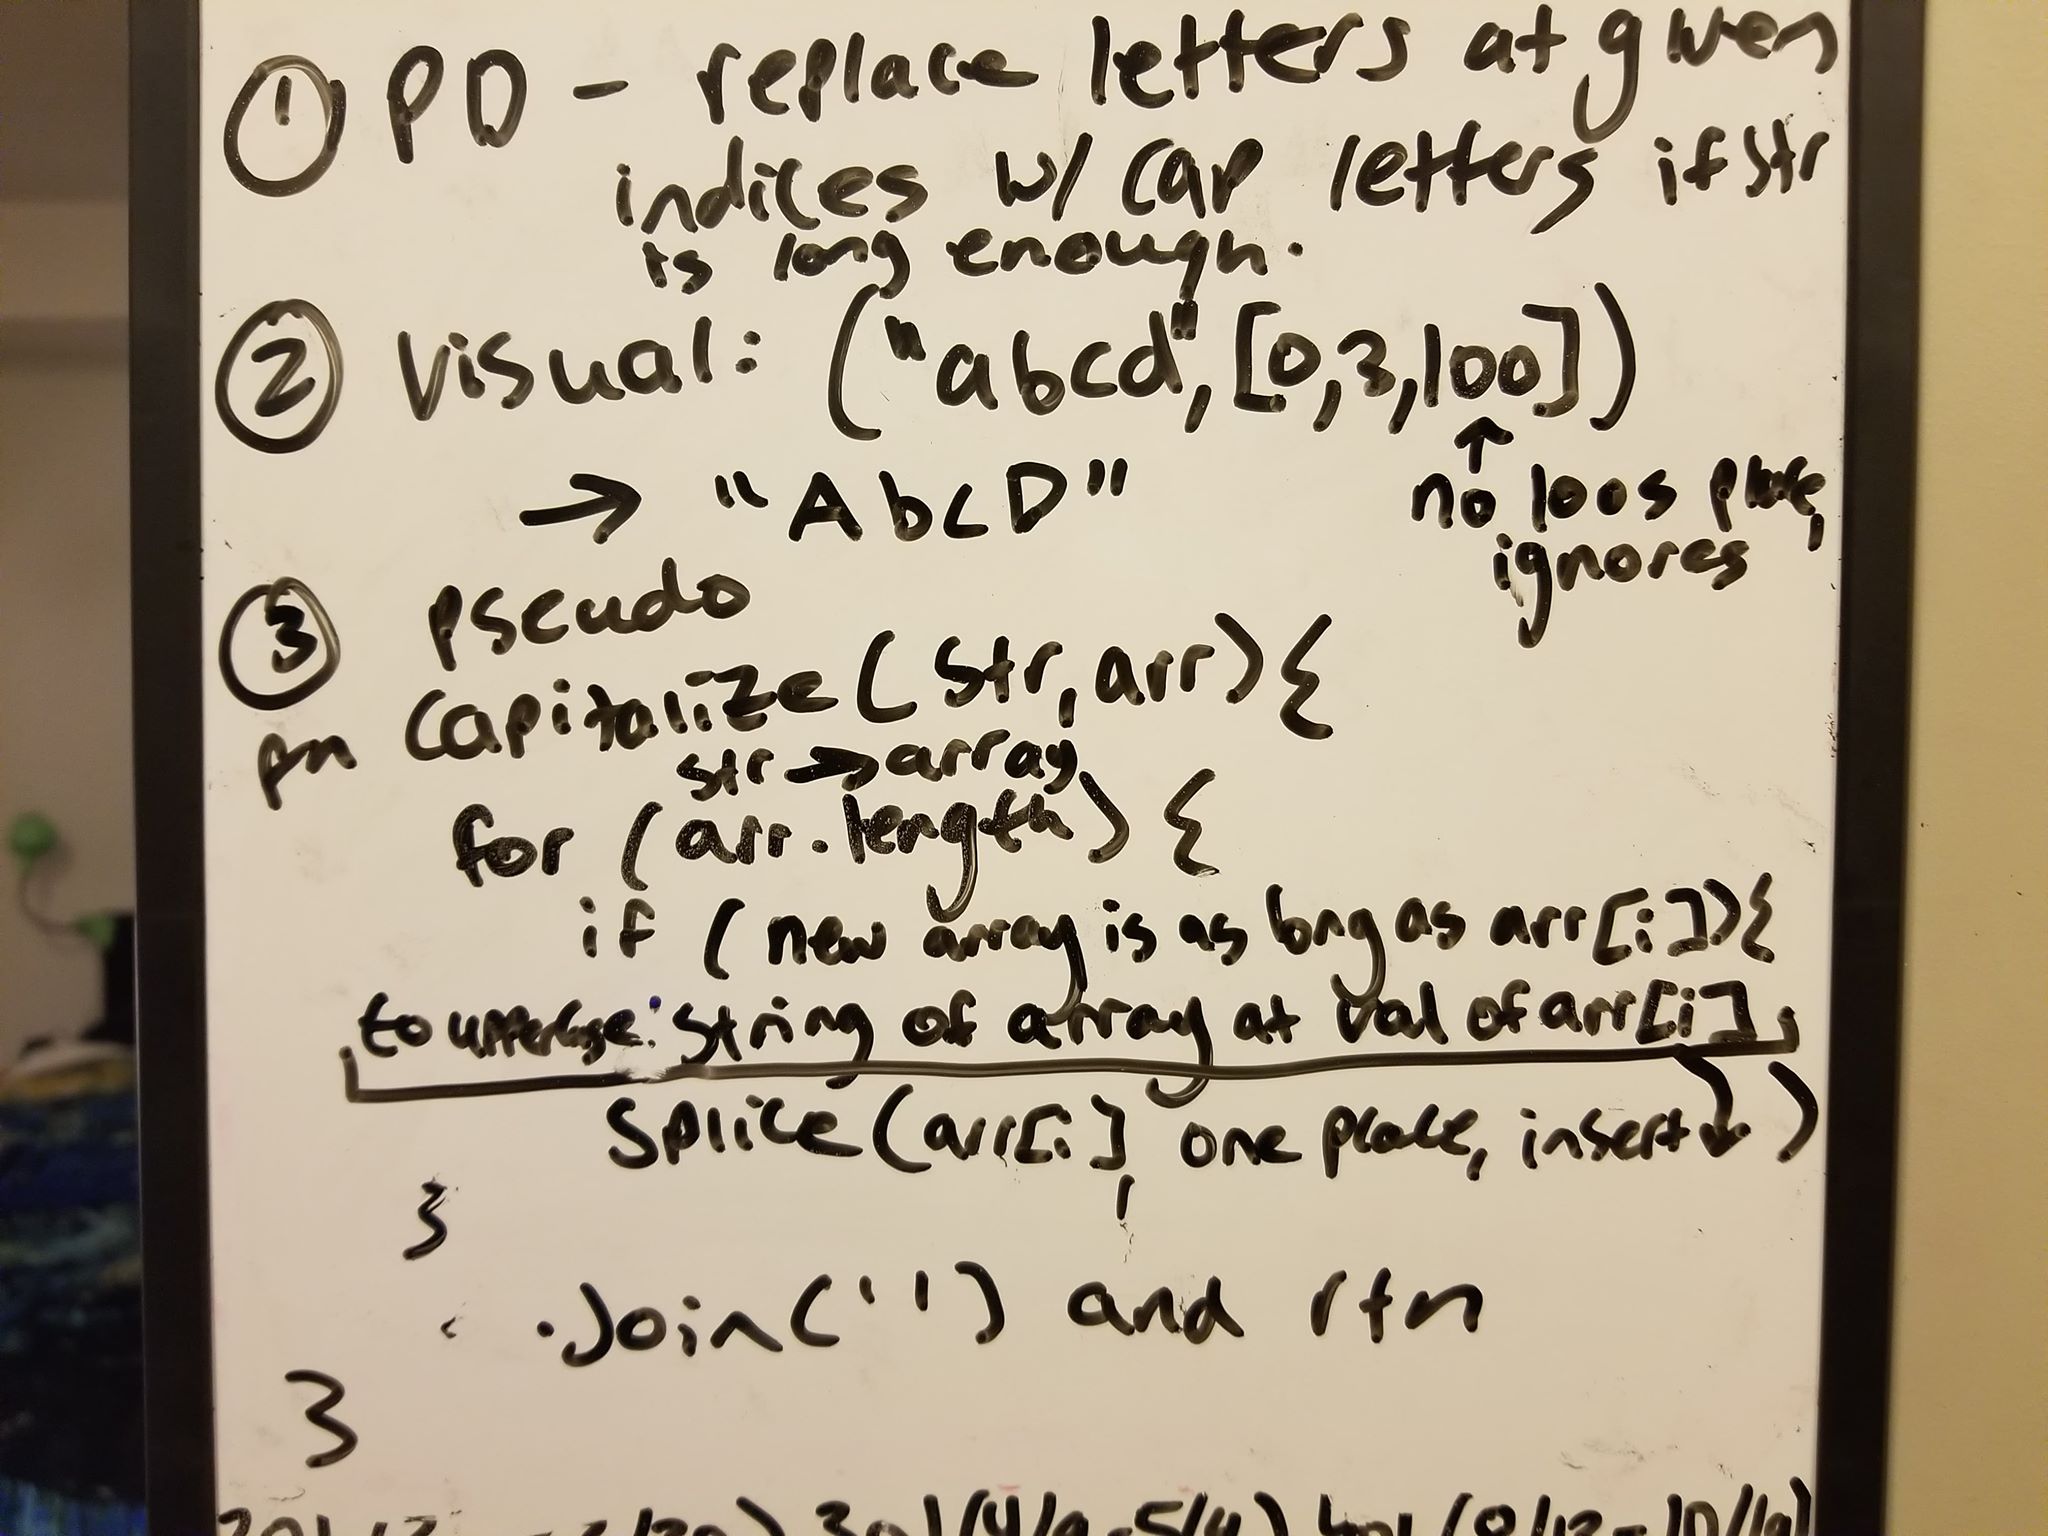 ① PD - replace letters at given
indices w/ cap letters if str
is long enough.
② Visual: ("abcd", [0,3,100])
↑
→ "AbcD"
no 100s place,
ignores
③ pseudo
fn capitalize(str, arr){
str → array
for (arr.length) {
if (new array is as long as arr[i]){
to uppercase: string of array at val of arr[i]
splice(arr[i], one place, insert ↓)
}
.join('') and rtn
}